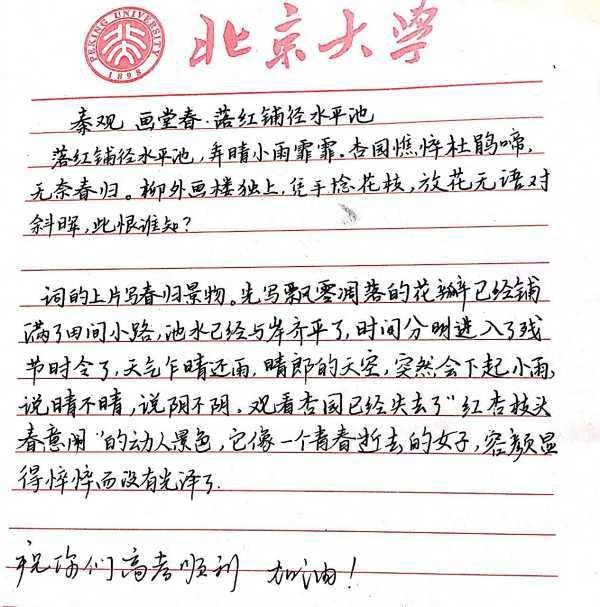 PEKING UNIVERSITY
1898
北京大学
秦观 画堂春·落红铺径水平池
落红铺径水平池,弄晴小雨霏霏。杏园憔悴杜鹃啼,
无奈春归。柳外画楼独上,凭手捻花枝,放花无语对
斜晖,此恨谁知?
词的上片写春归景物。先写飘零凋落的花瓣已经铺
满了田间小路,池水已经与岸齐平了,时间分明进入了残
节时令了,天气乍晴还雨,晴郎的天空,突然会下起小雨,
说晴不晴,说阴不阴。观看杏园已经失去了"红杏枝头
春意闹"的动人景色,它像一个青春逝去的女子,容颜显
得悴悴而没有光泽了.
祝你们高考顺利 加油!